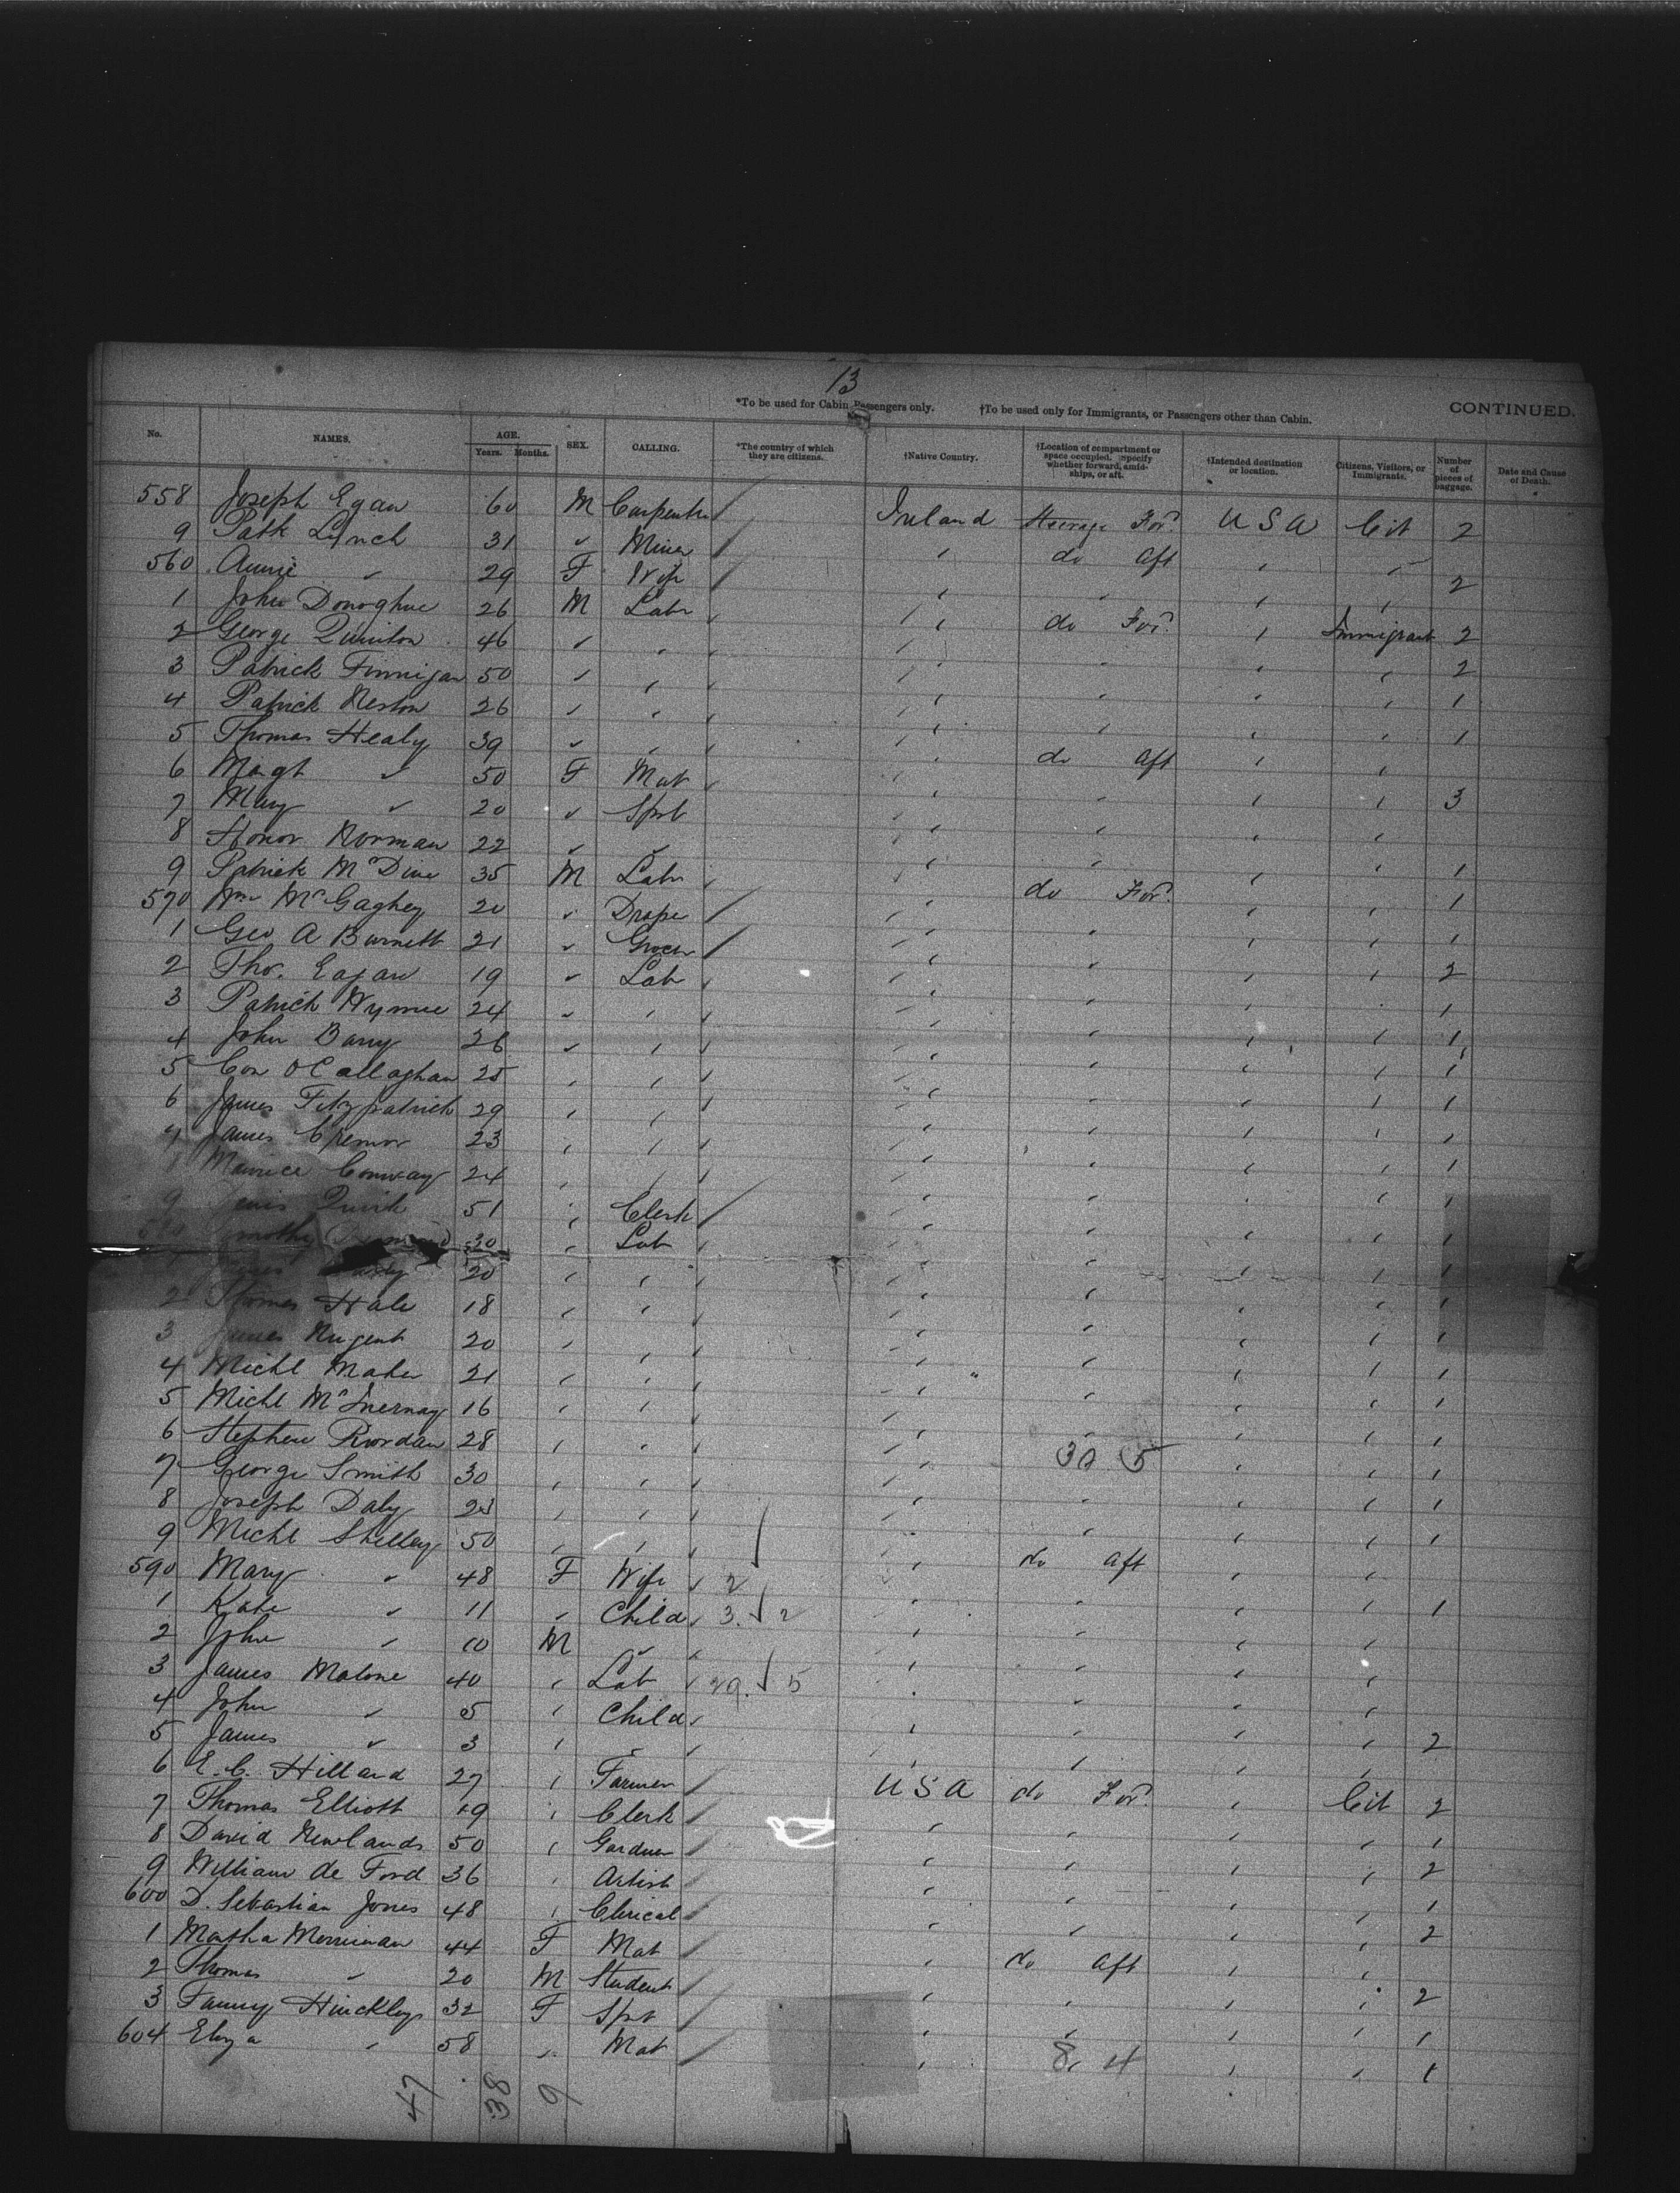 13
*To be used for Cabin Passengers only. †To be used only for Immigrants, or Passengers other than Cabin. CONTINUED.
No. NAMES. AGE. Years. Months. SEX. CALLING. *The country of which they are citizens. †Native Country. †Location of compartment or space occupied. Specify whether forward, amidships, or aft. †Intended destination or location. Citizens, Visitors, or Immigrants. Number of pieces of baggage. Date and Cause of Death.
558 Joseph Egan 60 M Carpenter Ireland Steerage For. USA Cit 2
9 Patk Lynch 31 " Miner " do Aft " "
560 Annie " 29 F Wife " " " " 2
1 John Donoghue 26 M Labr " do For. " Immigrant 2
2 George Quinton 46 " " " " " " 2
3 Patrick Finnigan 50 " " " " " " 1
4 Patrick Neston 26 " " " " " " 1
5 Thomas Healy 39 " " " do Aft " "
6 Margt " 50 F Mat " " " " 3
7 Mary " 20 " Spst " " " "
8 Honor Norman 22 " " " " " " 1
9 Patrick McDine 35 M Labr " do For. " " 1
570 Wm McGaghey 20 " Draper " " " " 1
1 Geo A Burnett 21 " Grocer " " " " 2
2 Thos. Eagan 19 " Lab " " " " 1
3 Patrick Wymne 24 " " " " " " 1
4 John Barry 26 " " " " " " 1
5 Con O'Callaghan 25 " " " " " " 1
6 James Fitzpatrick 29 " " " " " " 1
7 James Cremor 23 " " " " " " 1
Maurice Conway 24 " " " " " " 1
9 Quirk 51 " Clerk " " " " 1
30 " Lab " " " " 1
20 " " " " " " 1
2 Thomas Hale 18 " " " " " " 1
3 James Nugent 20 " " " " " " 1
4 Michl Maher 21 " " " " " " 1
5 Michl McInernay 16 " " " " " " 1
6 Stephen Riordan 28 " " " " " " 1
7 George Smith 30 " " " 30 5 " " 1
8 Joseph Daly 23 " " " " " " 1
9 Michl Shelley 50 " " " do Aft " "
590 Mary " 48 F Wife 2 " " " " 1
1 Kate " 11 " Child 3. 2 " " " "
2 John " 10 M " " " " "
3 James Malone 40 " Lab 29. 5 " " " "
4 John " 5 " Child " " " " 2
5 James " 3 " " " " " "
6 E. C. Hilland 27 " Farmer USA do For. " Cit 2
7 Thomas Elliott 19 " Clerk " " " " 1
8 David Newlands 50 " Gardner " " " " 2
9 William de Ford 36 " Artist " " " " 1
600 D. Sebastian Jones 48 " Clerical " " " " 2
1 Martha Merriman 44 F Mat " do Aft " "
2 Thomas " 20 M Student " " " " 2
3 Fanny Hinckley 32 F Spst " " " " 1
604 Eliza " 58 " Mat " 8 4 " " 1
47 38 9